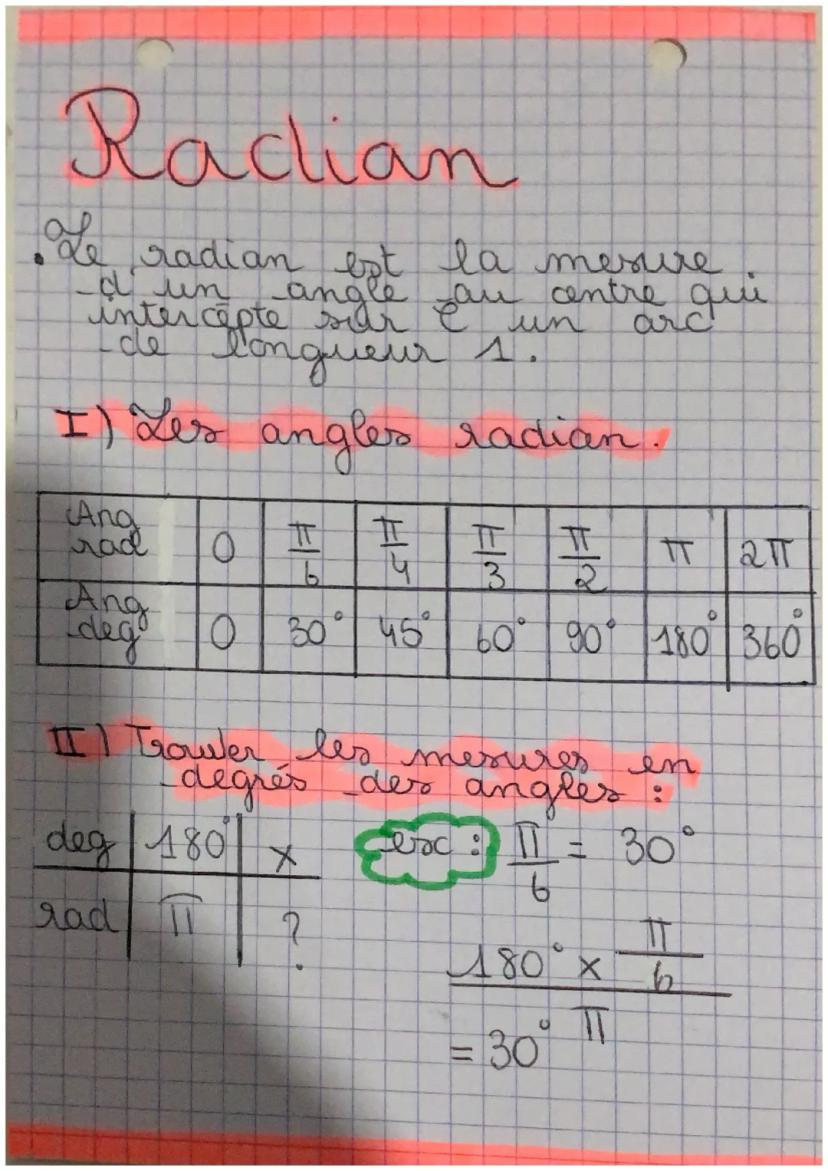 Radian
. Le radian est la mesure
d'un angle au centre qui
intercepte sur C un arc
de longueur 1.
I) Les angles radian.
Ang rad | 0 | π/6 | π/4 | π/3 | π/2 | π | 2π
Ang deg | 0 | 30° | 45° | 60° | 90° | 180° | 360°
II) Trouver les mesures en
degrés des angles :
deg | 180° | x
rad | π | ?
exc : π/6 = 30°
180° x π/6
π
= 30°